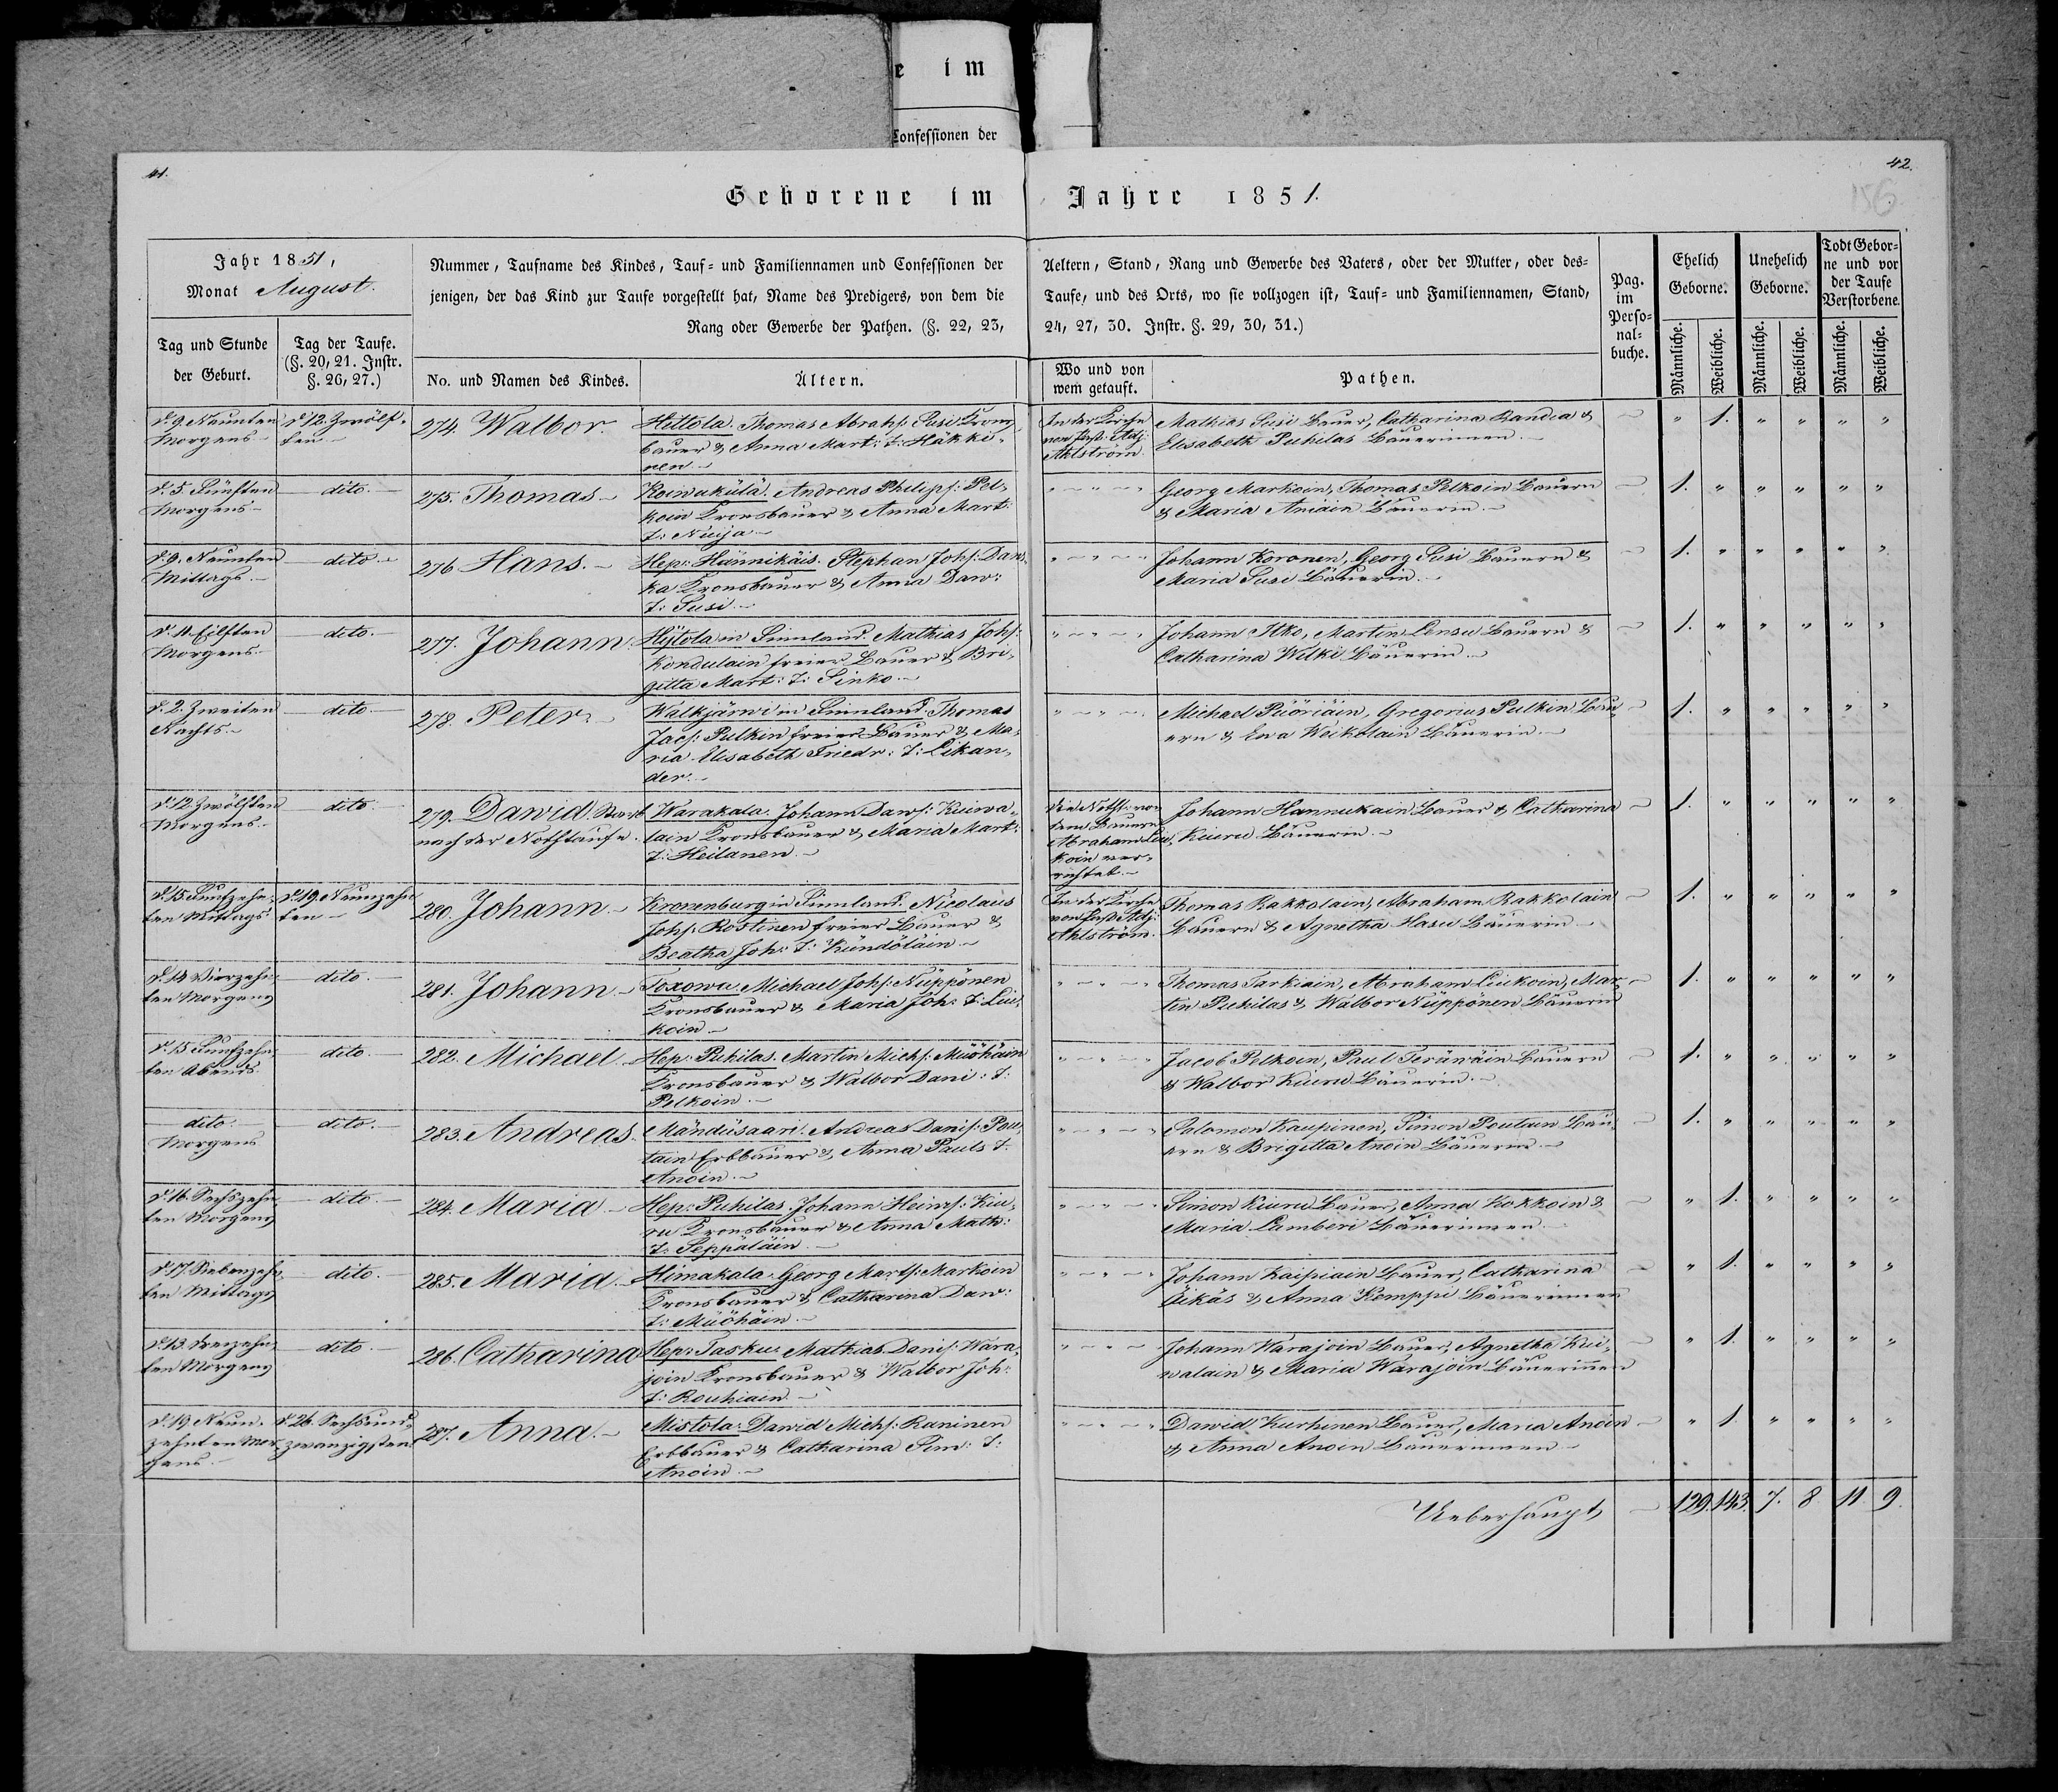 e im
Confessionen der
41.
42.
156
Geborene im Jahre 1851.
Jahr 1851,
Monat August.
Tag und Stunde
der Geburt.
Tag der Taufe.
(§. 20, 21. Instr.
§. 26, 27.)
Nummer, Taufname des Kindes, Tauf= und Familiennamen und Confessionen der
jenigen, der das Kind zur Taufe vorgestellt hat, Name des Predigers, von dem die
Rang oder Gewerbe der Pathen. (§. 22, 23,
No. und Namen des Kindes.
Ältern.
Aeltern, Stand, Rang und Gewerbe des Vaters, oder der Mutter, oder des=
Taufe, und des Orts, wo sie vollzogen ist, Tauf= und Familiennamen, Stand,
24, 27, 30. Instr. §. 29, 30, 31.)
Wo und von
wem getauft.
Pathen.
Pag.
im
Perso=
nal=
buche.
Ehelich
Geborne.
Unehelich
Geborne.
Todt Gebor=
ne und vor
der Taufe
Verstorbene.
Männliche.
Weibliche.
Männliche.
Weibliche.
Männliche.
Weibliche.
d. 9. Neunten
Morgens
d. 12. Zwölf-
ten
274. Walbor.
Hittola. Thomas Abrahs: Susi Krons
bauer & Anna Mart: T: Häkki-
nen
In der Kirche
von Past: Adj:
Ahlström
Mathias Susi Bauer, Catharina Randia &
Elisabeth Puhilas Bäuerinnen
1.
d. 5. Fünften
Morgens
dito.
275. Thomas
Koiwukülä. Andreas Philips: Pel-
koin Kronsbauer & Anna Mart:
T: Nuija
Georg Markoin, Thomas Pelkoin Bauern
& Maria Aniäin Bäuerin
1.
d. 9. Neunten
Mittags
dito
276. Hans.
Hep: Hännikäis. Stephan Johs: Dans-
ka Kronsbauer & Anna Daw:
T: Susi
Johann Koronen, Georg Susi Bauern &
Maria Susi Bäuerin
1.
d. 11. Eilften
Morgens
dito.
277. Johann
Hijtola in Finnland. Mathias Johs:
Kondulain freier Bauer & Bri-
gitta Mart: T: Sinko
Johann Itko, Martin Lensu Bauern &
Catharina Wilki Bäuerin
1.
d. 2. Zweiten
Nachts
dito
278. Peter.
Walkjärwi in Finnland. Thomas
Jacs: Pulkin freier Bauer & Ma-
ria Elisabeth Friedr: T: Likan-
der.
Michael Püöriäin, Gregorius Pulkin Bau-
ern & Ewa Weikolain Bäuerin
1.
d. 12. Zwölften
Morgens
dito.
279. Dawid. Starb
nach der Nothtaufe.
Warakala. Johann Daws: Kuiwa-
lain Kronsbauer & Maria Mart:
T: Heilanen
Die Nottf: von
dem Bauern
Abraham Liu-
koin ver-
richtet.
Johann Hannukain Bauer & Catharina
Kiuru Bäuerin
1.
d. 15. Funfzehn-
ten Mittags
d. 19. Neunzehn-
ten
280. Johann
Kronenburg in Finnland. Nicolaus
Johs: Rostinen freier Bauer &
Beatha Joh: T: Kündöläin
In der Kirche
von Past: Adj:
Ahlström.
Thomas Rakkolain, Abraham Rakkolain
Bauern & Agnetha Hasu Bäuerin
1.
d. 14. Vierzehn-
ten Morgens
dito.
281. Johann
Toxowa. Michael Johs: Nüppönen
Kronsbauer & Maria Joh: T: Liu-
koin
Thomas Tarkiain, Abraham Liukoin, Mar-
tin Puhilas & Walbor Nüppönen Bäuerin
1.
d. 15. Funfzehn-
ten Abends.
dito.
282. Michael
Hep: Puhilas. Martin Michs: Müöhäin
Kronsbauer & Walbor Dani: T:
Pelkoin.
Jacob Pelkoin, Paul Teräwäin Bauern
& Walbor Kiuru Bäuerin.
1.
dito.
Morgens
dito.
283. Andreas
Mändüsaari. Andreas Danis: Pou-
tain Erbbauer & Anna Pauls T.
Anoin
Salomon Kaupinen, Simon Poutain Bau-
ern & Brigitta Anoin Bäuerin
1.
d. 16. Sechszehn-
ten Morgens
dito.
284. Maria
Hep: Puhilas. Johann Heinrs: Kiu-
ru Kronsbauer & Anna Math:
T: Seppäläin
Simon Kiuru Bauer, Anna Kokkoin &
Maria Lamberi Bäuerinnen
1.
d. 17. Siebenzehn-
ten Mittags
dito.
285. Maria
Himakala. Georg Marts: Markoin
Kronsbauer & Catharina Daw:
T: Müöhäin
Johann Kaipiain Bauer, Catharina
Äikäs & Anna Kemppi Bäuerinnen
1.
d. 13. Dreizehn-
ten Morgens
dito.
286. Catharina
Hep: Tasku. Mathias Danis: Wara-
join Kronsbauer & Walbor Joh:
T: Rouhiain
Johann Warajoin Bauer, Agnetha Kui-
walain & Maria Warajoin Bäuerinnen
1.
d. 19. Neun-
zehnten Mor-
gens
d. 26. Sechsund-
zwanzigsten
287. Anna.
Mistola. Dawid Michs: Raninen
Erbbauer & Catharina Sim: T:
Anoin
Dawid Kurhinen Bauer, Maria Anoin
& Anna Anoin Bäuerinnen
1.
Ueberhaupt 129. 143. 7. 8 11. 9.